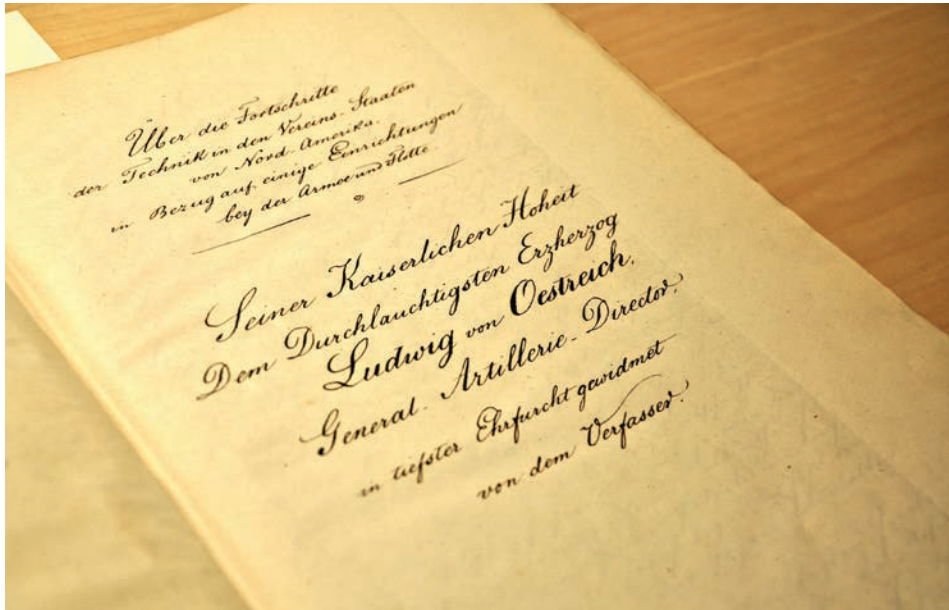 Über die Fortschritte
der Technik in den Vereins-Staaten
von Nord-Amerika.
in Bezug auf einige Einrichtungen
bey der Armee und Flotte.
Seiner Kaiserlichen Hoheit
Dem Durchlauchtigsten Erzherzog
Ludwig von Oestreich.
General-Artillerie-Director.
in tiefster Ehrfurcht gewidmet
von dem Verfasser.